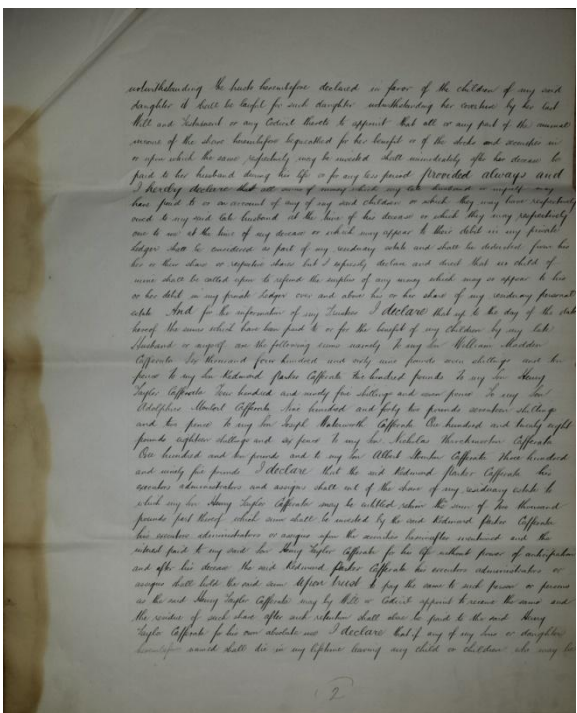 notwithstanding the trusts hereinbefore declared in favor of the children of my said
daughter it shall be lawful for such daughter notwithstanding her coverture by her last
Will and Testament or any Codicil thereto to appoint that all or any part of the annual
income of the share hereinbefore bequeathed for her benefit or of the stocks and securities in
or upon which the same respectively may be invested shall immediately after her decease be
paid to her husband during his life or for any less period Provided always and
I hereby declare that all sums of money which my late husband or myself may
have paid to or on account of any of my said children or which they may have respectively
owed to my said late husband at the time of his decease or which they may respectively
owe to me at the time of my decease or which may appear to their debit in my private
ledger shall be considered as part of my residuary estate and shall be deducted from his
her or their share or respective shares but I expressly declare and direct that no child of
mine shall be called upon to refund the surplus of any money which may or appear to his
or her debit in my private ledger over and above his or her share of my residuary personal
estate And for the information of my Trustees I declare that up to the day of the date
hereof the sums which have been paid to or for the benefit of my children by my late
Husband or myself are the following sums namely To my son William Madden
Cafferata thousand four hundred and sixty nine pounds seven shillings and
pence to my Son Redmond Parker Cafferata two hundred pounds To my Son Henry
Taylor Cafferata Four hundred and ninety five shillings and seven pence To my Son
Adolphus Cafferata Nine hundred and forty two pounds seventeen shillings
and two pence to my Son Joseph Cafferata One hundred and twenty eight
pounds eighteen shillings and six pence to my Son Nicholas Cafferata
One hundred and ten pounds and to my Son Albert Cafferata Three hundred
and ninety five pounds I declare that the said Redmond Parker Cafferata his
executors administrators and assigns shall out of the share of my residuary estate to
which my Son Henry Taylor Cafferata may be entitled retain the sum of thousand
pounds part thereof which sum shall be invested by the said Redmond Parker Cafferata
his executors administrators or assigns upon the securities hereinafter mentioned and the
interest paid to my said Son Henry Taylor Cafferata for his life without power of anticipation
and after his decease the said Redmond Parker Cafferata his executors administrators or
assigns shall hold the said sum Upon trust to pay the same to such person or persons
as the said Henry Taylor Cafferata may by Will or Codicil appoint to receive the same and
the residue of such share after such retention shall also be paid to the said Henry
Taylor Cafferata for his own absolute use I declare that if any of my sons or daughter
hereinbefore named shall die in my lifetime leaving any child or children who may be
2